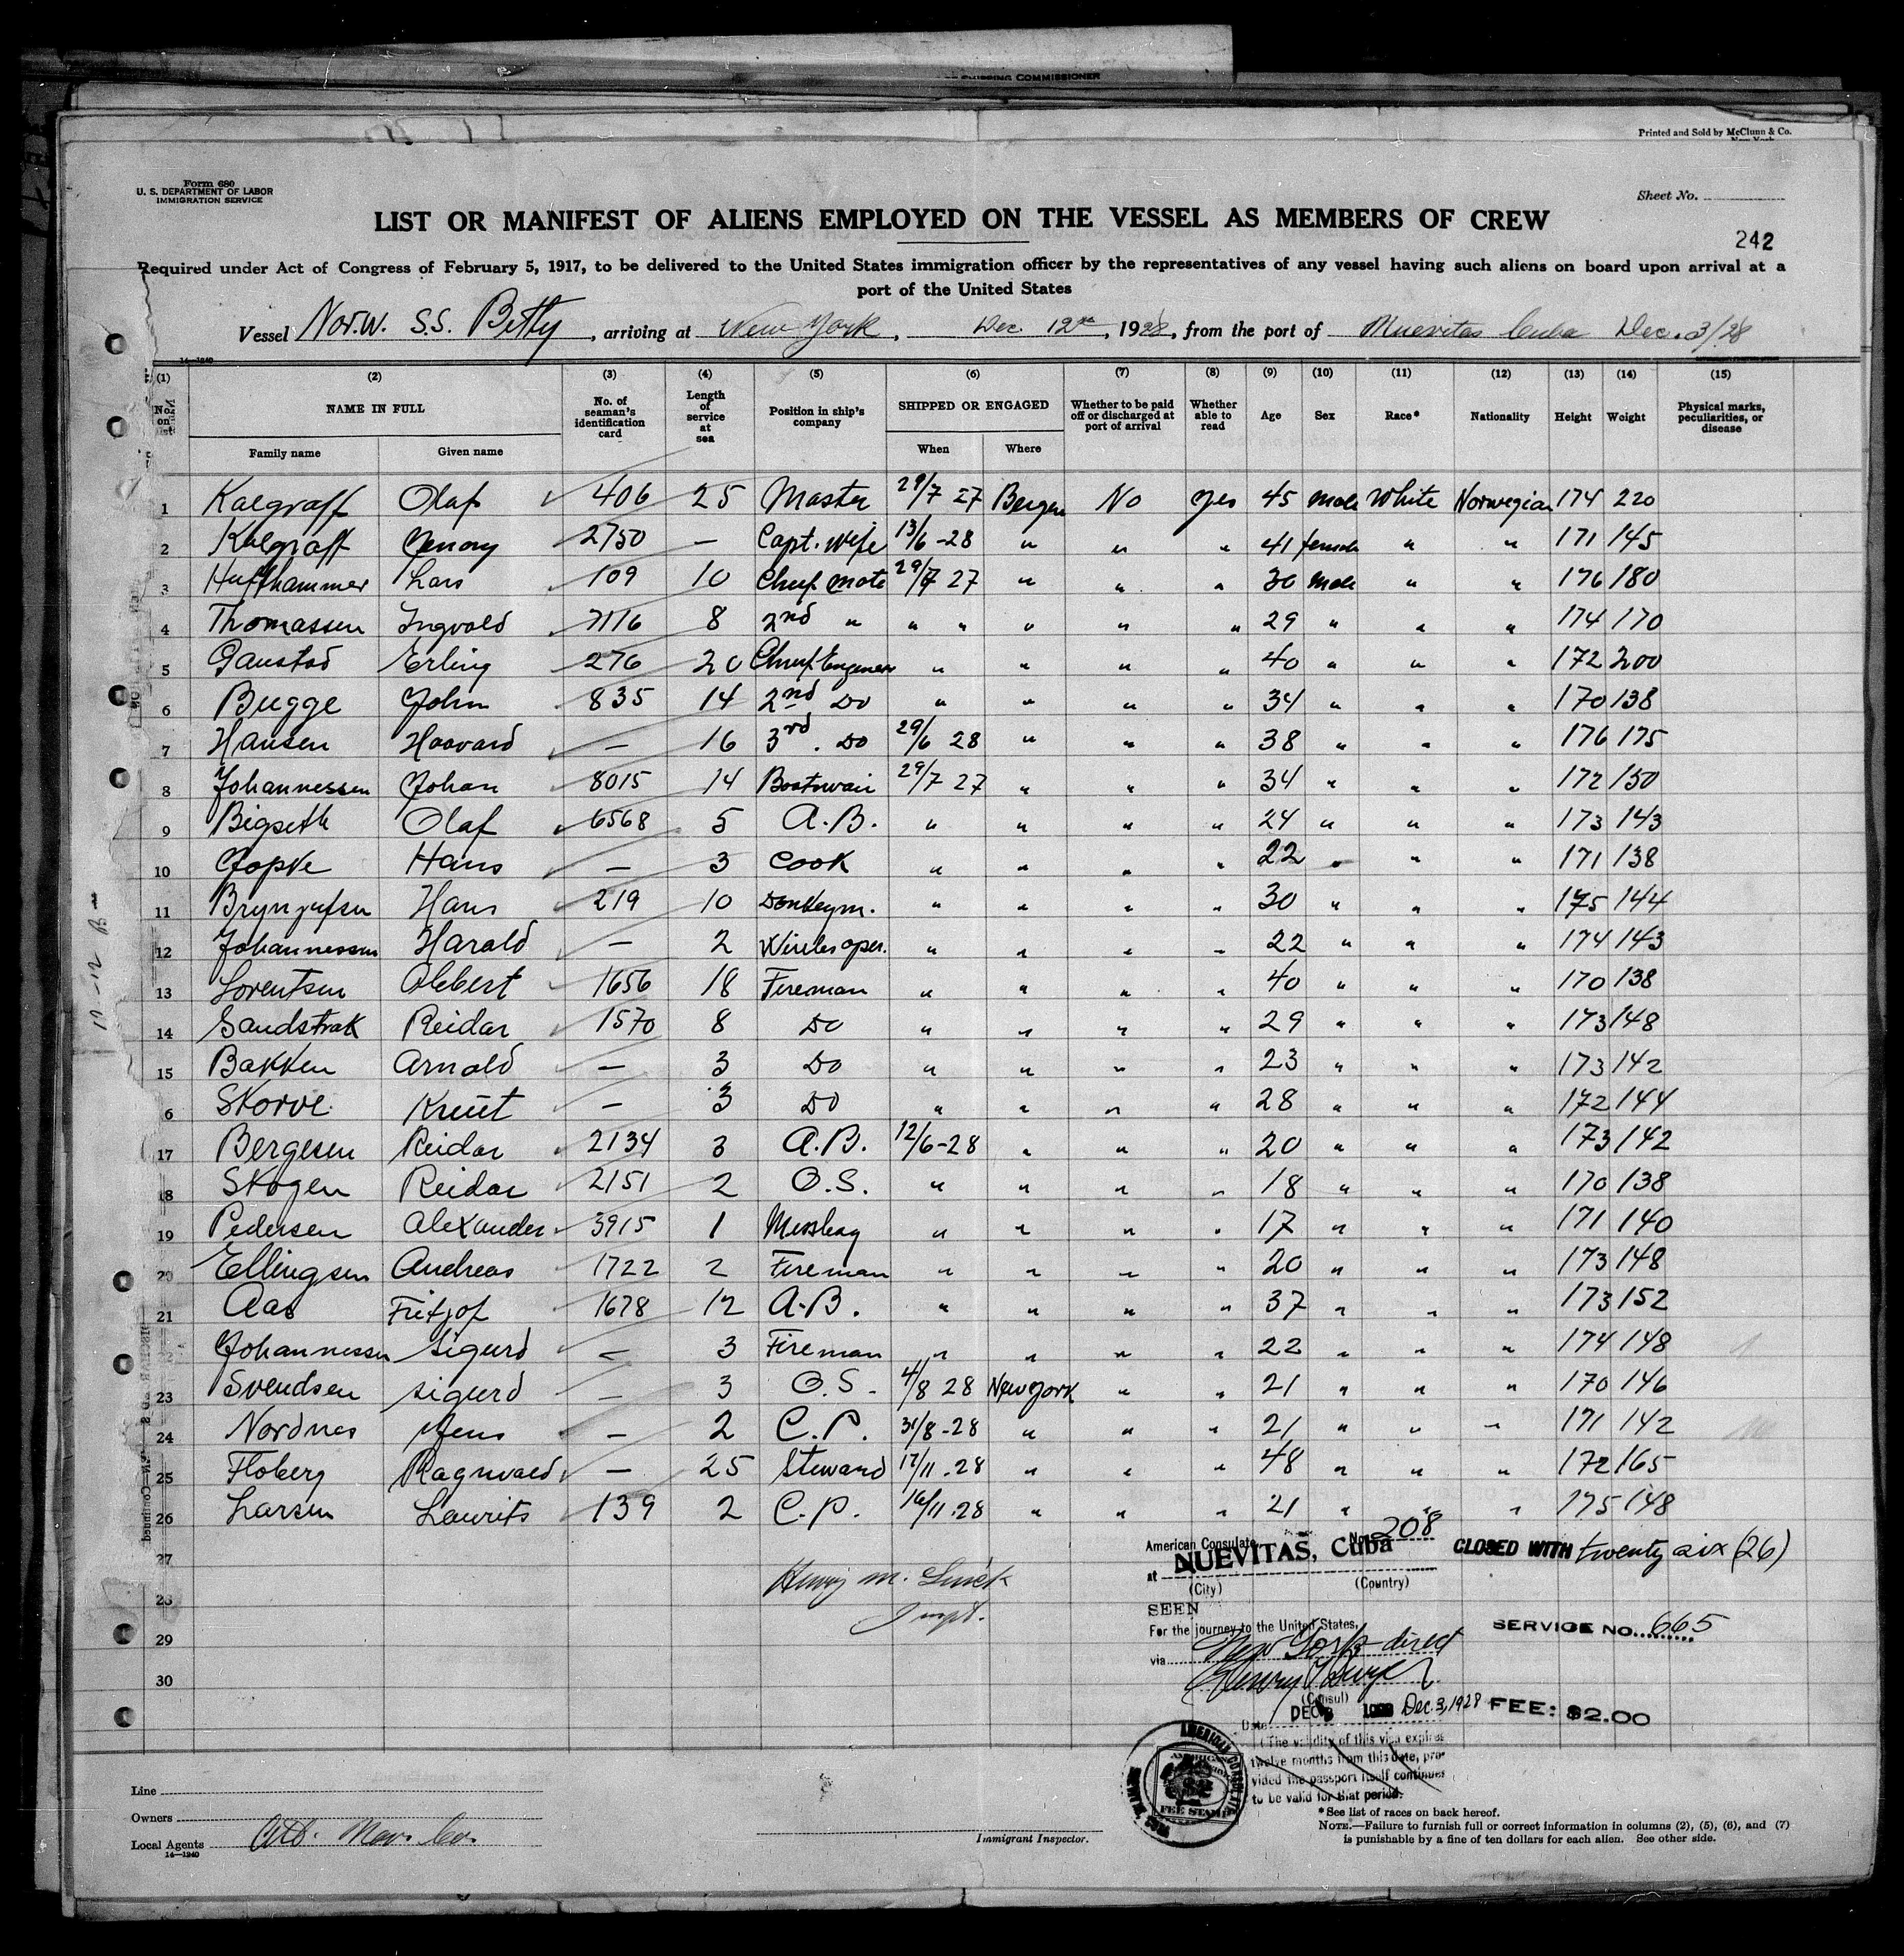 SHIPPING COMMISSIONER
Printed and Sold by McClunn & Co.
New York
Form 680
U. S. DEPARTMENT OF LABOR
IMMIGRATION SERVICE
Sheet No.
LIST OR MANIFEST OF ALIENS EMPLOYED ON THE VESSEL AS MEMBERS OF CREW
242
Required under Act of Congress of February 5, 1917, to be delivered to the United States immigration officer by the representatives of any vessel having such aliens on board upon arrival at a
port of the United States
Vessel Nor.w. S.S. Betty, arriving at New York, Dec. 12th, 1928, from the port of Nuevitas Cuba Dec. 3/28
14—1940
(1) (2) (3) (4) (5) (6) (7) (8) (9) (10) (11) (12) (13) (14) (15)
No. on list NAME IN FULL No. of seaman's identification card Length of service at sea Position in ship's company SHIPPED OR ENGAGED Whether to be paid off or discharged at port of arrival Whether able to read Age Sex Race* Nationality Height Weight Physical marks, peculiarities, or disease
Family name Given name When Where
1 Kalgraff Olaf 406 25 Master 29/7 27 Bergen No yes 45 male White Norwegian 174 220
2 Kalgraff 2750 — Capt. wife 13/6 -28 " " " 41 female " " 171 145
3 Huffhammer Lars 109 10 Chief mate 29/7 27 " " " 30 male " " 176 180
4 Thomassen Ingvald 7116 8 2nd " " " " " " 29 " " " 174 170
5 Ganstad Erling 276 20 Chief Engineer " " " " 40 " " " 172 200
6 Bugge John 835 14 2nd Do " " " " 34 " " " 170 138
7 Hansen Haavard — 16 3rd . Do 29/6 28 " " " 38 " " " 176 175
8 Johannessen Johan 8015 14 Boatswain 29/7 27 " " " 34 " " " 172 150
9 Bigseth Olaf 6568 5 A.B. " " " " 24 " " " 173 143
10 Hans — 3 Cook " " " " 22 " " " 171 138
11 Hans 219 10 Donkeym. " " " " 30 " " " 175 144
12 Johannessen Harald — 2 Wireles oper. " " " " 22 " " " 174 143
13 Lorentsen Albert 1656 18 Fireman " " " " 40 " " " 170 138
14 Sandstrak Reidar 1570 8 Do " " " " 29 " " " 173 148
15 Bakken Arnold — 3 Do " " " " 23 " " " 173 142
6 Skorve Knut — 3 Do " " " " 28 " " " 172 144
17 Bergesen Reidar 2134 3 A.B. 12/6-28 " " " 20 " " " 173 142
18 Skogen Reidar 2151 2 O.S. " " " " 18 " " " 170 138
19 Pedersen Alexander 3915 1 Messboy " " " " 17 " " " 171 140
20 Ellingsen Andreas 1722 2 Fireman " " " " 20 " " " 173 148
21 Aas Fritjof 1678 12 A.B. " " " " 37 " " " 173 152
22 Johannessen Sigurd — 3 Fireman " " " " 22 " " " 174 148
23 Svendsen Sigurd — 3 O.S. 4/8 28 New york " " 21 " " " 170 146
24 Nordnes Jens — 2 C.P. 31/8-28 " " " 21 " " " 171 142
25 Floberg Ragnvald — 25 Steward 17/11.28 " " " 48 " " " 172 165
26 Larsen Laurits 139 2 C.P. 16/11.28 " " " 21 " " " 175 148
27
28
29
30
American Consulate, No. 208
at NUEVITAS, Cuba
(City) (Country)
CLOSED WITH twenty six (26)
Henry M.
Inspt.
SEEN
For the journey to the United States,
via New York direct
SERVICE NO. 665
(Consul)
Date DEC 3 Dec. 3, 1928
FEE: $2.00
(The validity of this visa expires
twelve months from this date, pro-
vided the passport itself continues
to be valid for that period.
AMERICAN CONSULATE
FEE STAMP
Line
Owners
Local Agents
14—1940
Immigrant Inspector.
*See list of races on back hereof.
NOTE.—Failure to furnish full or correct information in columns (2), (5), (6), and (7)
is punishable by a fine of ten dollars for each alien. See other side.